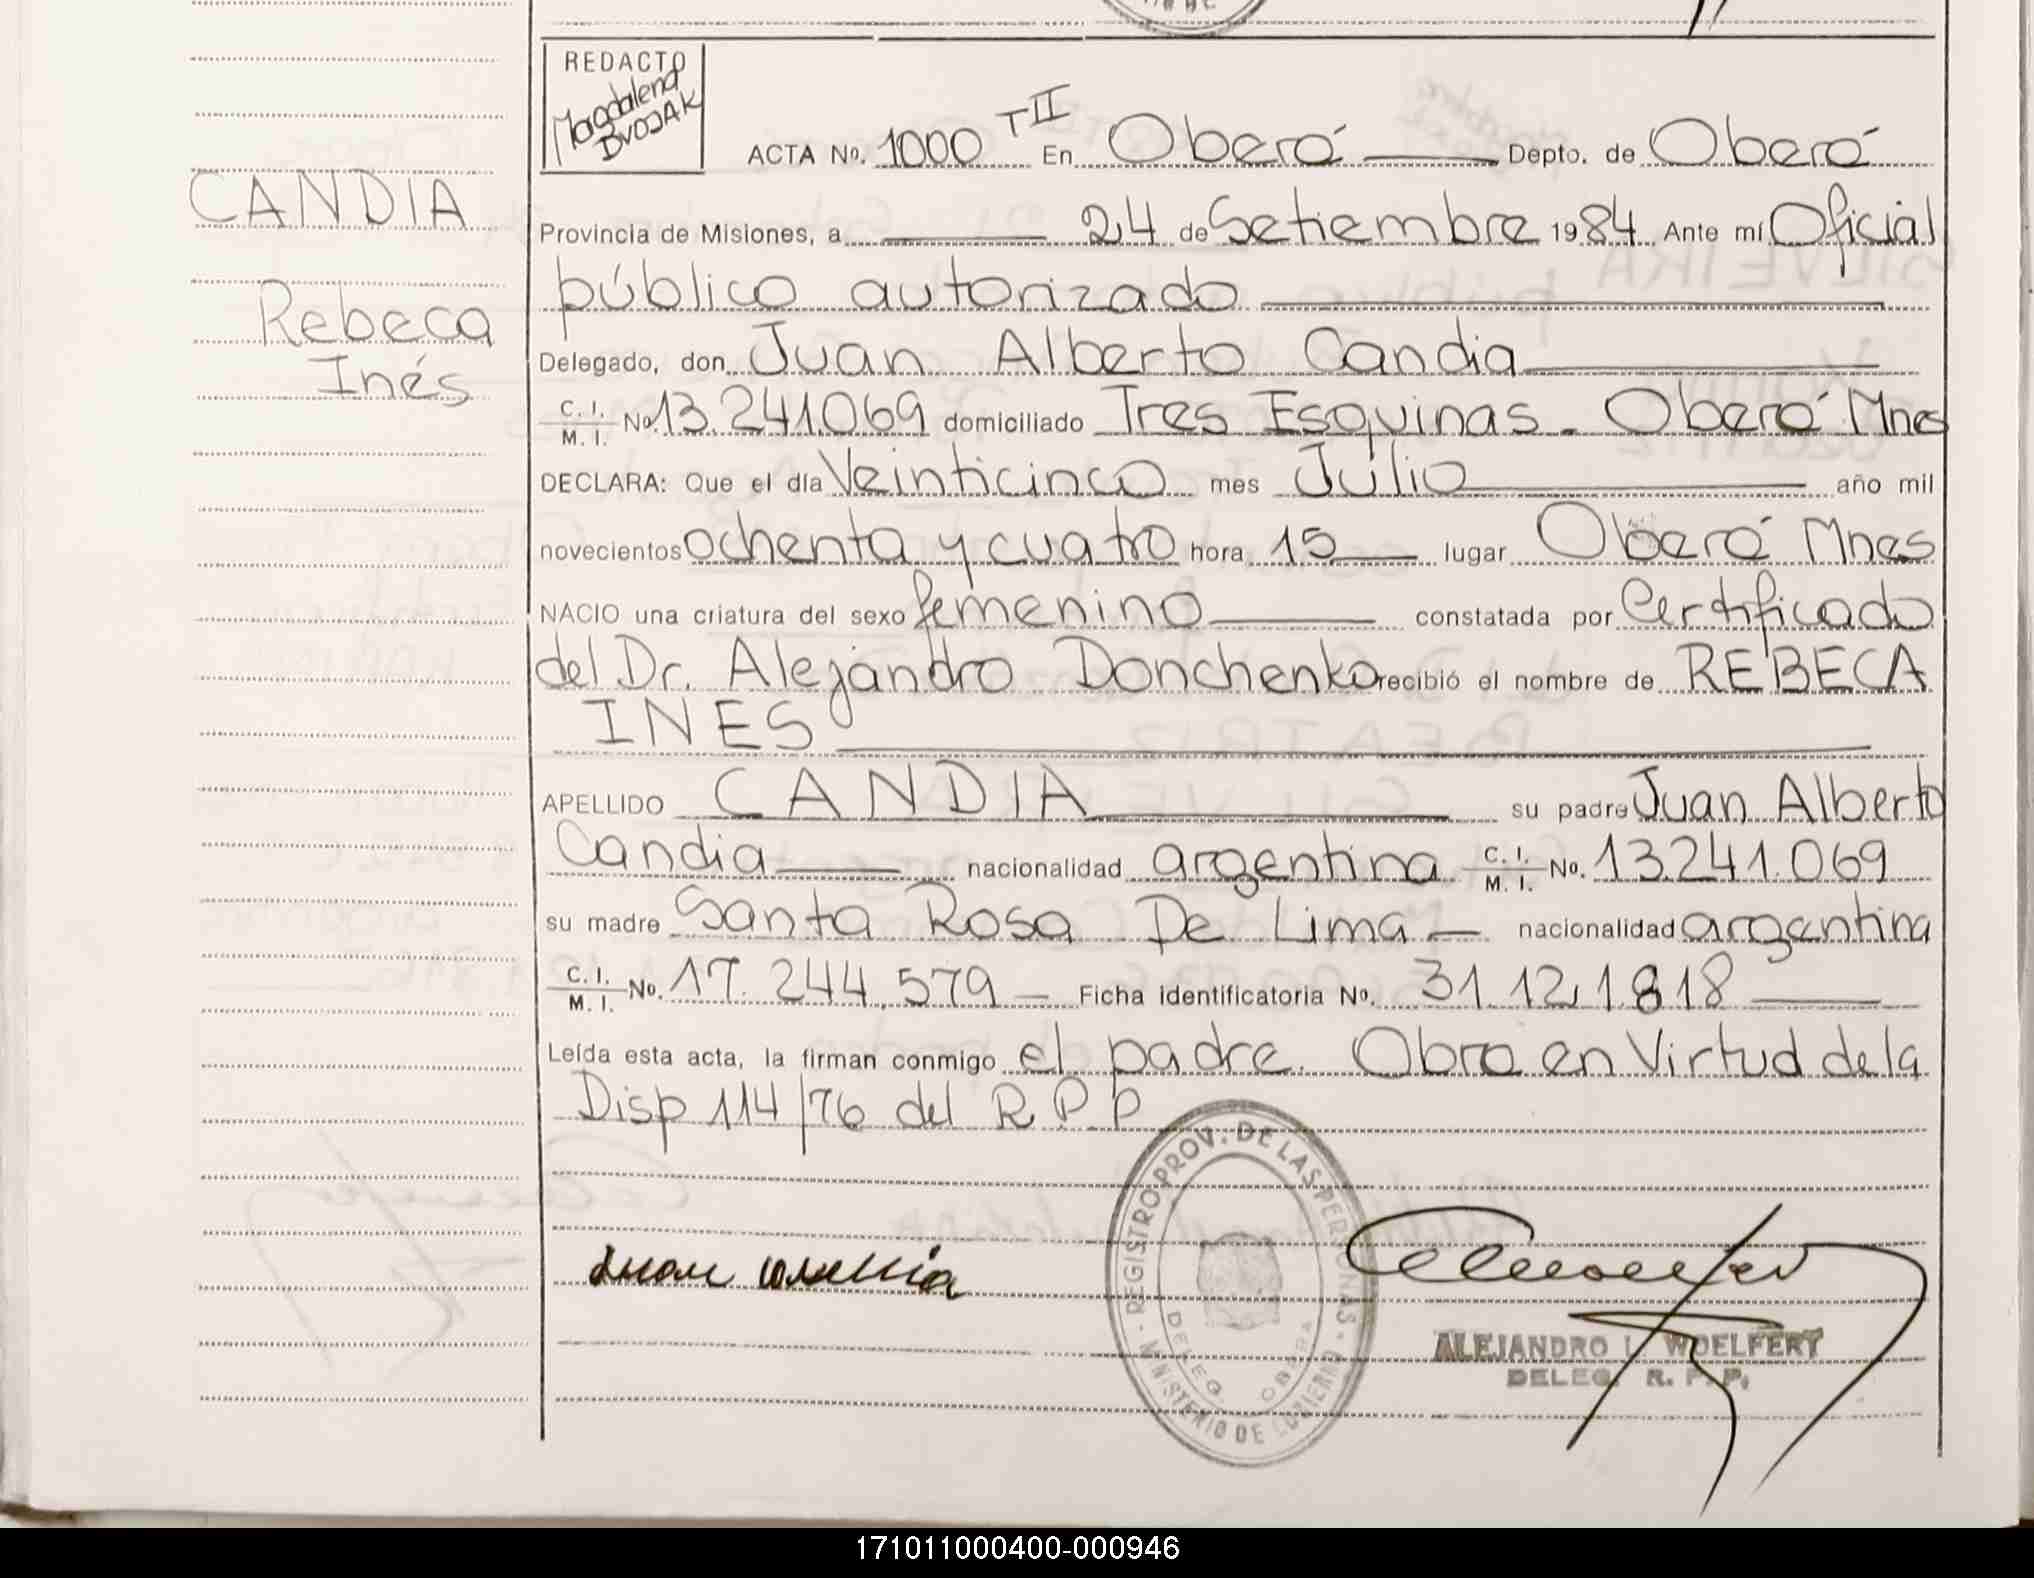 REDACTO
Magdalena
DVOJAK
ACTA No. 1000 TII En Oberá Depto. de Oberá
CANDIA
Rebeca
Inés
Provincia de Misiones, a 24 de Setiembre 1984 Ante mí Oficial
público autorizado
Delegado, don Juan Alberto Candia
C. I. M. I. No. 13.241.069 domiciliado Tres Esquinas. Oberá Mnes
DECLARA: Que el día Veinticinco mes Julio año mil
novecientos ochenta y cuatro hora 15 lugar Oberá Mnes
NACIO una criatura del sexo femenino constatada por Certificado
del Dr. Alejandro Donchenko recibió el nombre de REBECA
INES
APELLIDO CANDIA su padre Juan Alberto
Candia nacionalidad argentina C. I. M. I. No. 13.241.069
su madre Santa Rosa De Lima nacionalidad argentina
C. I. M. I. No. 17.244.579 Ficha identificatoria No. 31.12.1.818
Leída esta acta, la firman conmigo el padre. Obro en Virtud de la
Disp 114/76 del R.P.P
REGISTRO PROV. DE LAS PERSONAS
MINISTERIO DE GOBIERNO
DELEG. OBERA
Juan Candia
ALEJANDRO L. WOELFERT
DELEG. R. P. P.
171011000400-000946